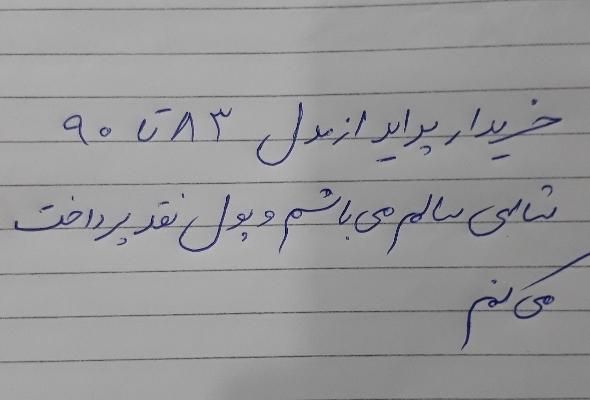 خریدار پراید از مدل ۸۳ تا ۹۰
شاسی سالم می باشم و پول نقد پرداخت
می کنم